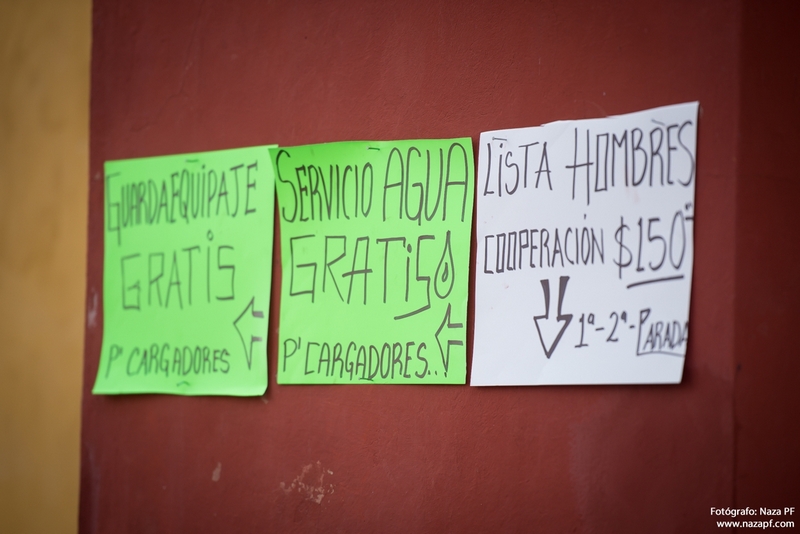 GUARDAEQUIPAJE
GRATIS
P' CARGADORES
SERVICIO AGUA
GRATIS
P' CARGADORES..
LISTA HOMBRES
COOPERACIÓN $150
1ª-2ª-PARADA
Fotógrafo: Naza PF
www.nazapf.com